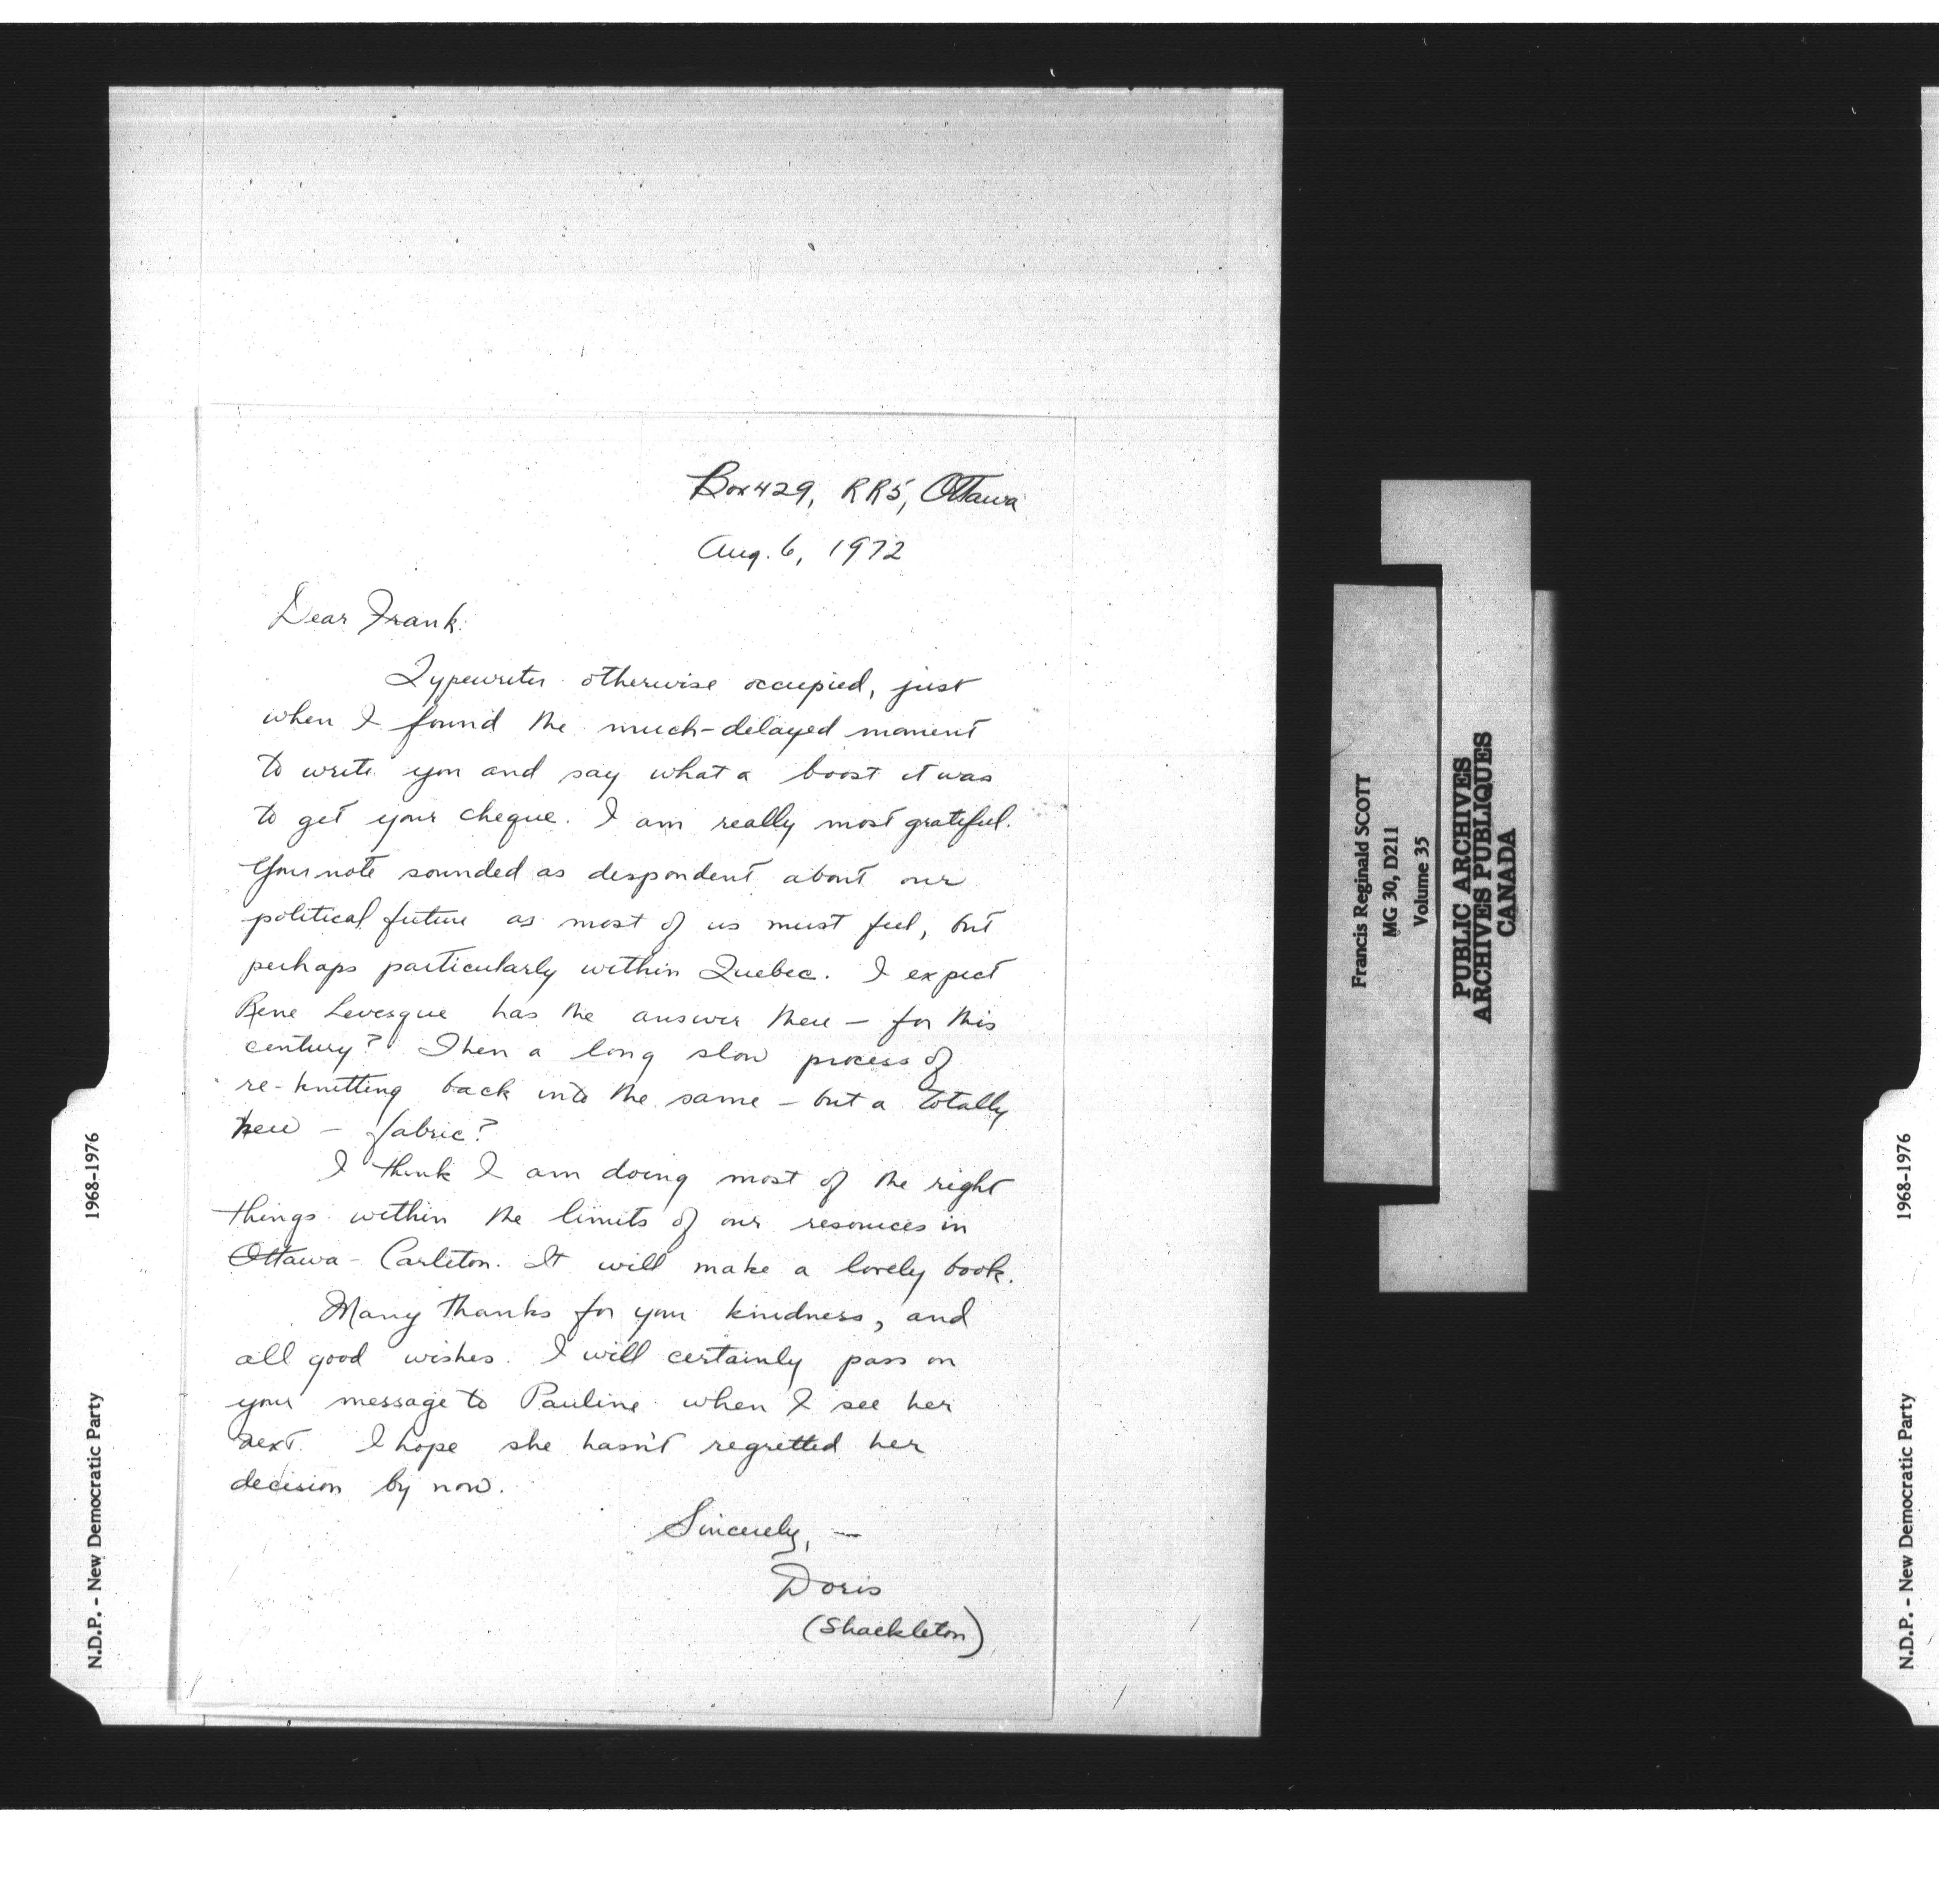 Box 429, RR5, Ottawa
Aug. 6, 1972
Dear Frank:
Typewriter otherwise occupied, just
when I found the much-delayed moment
to write you and say what a boost it was
to get your cheque. I am really most grateful.
Your note sounded as despondent about our
political future as most of us must feel, but
perhaps particularly within Quebec. I expect
Rene Levesque has the answer there — for this
century? Then a long slow process of
re-knitting back into the same — but a totally
new — fabric?
I think I am doing most of the right
things within the limits of our resources in
Ottawa-Carleton. It will make a lovely book.
Many thanks for your kindness, and
all good wishes. I will certainly pass on
your message to Pauline when I see her
next. I hope she hasn't regretted her
decision by now.
Sincerely, —
Doris
(Shackleton)
N.D.P. - New Democratic Party 1968-1976
Francis Reginald SCOTT
MG 30, D211
Volume 35
PUBLIC ARCHIVES
ARCHIVES PUBLIQUES
CANADA
N.D.P. - New Democratic Party 1968-1976